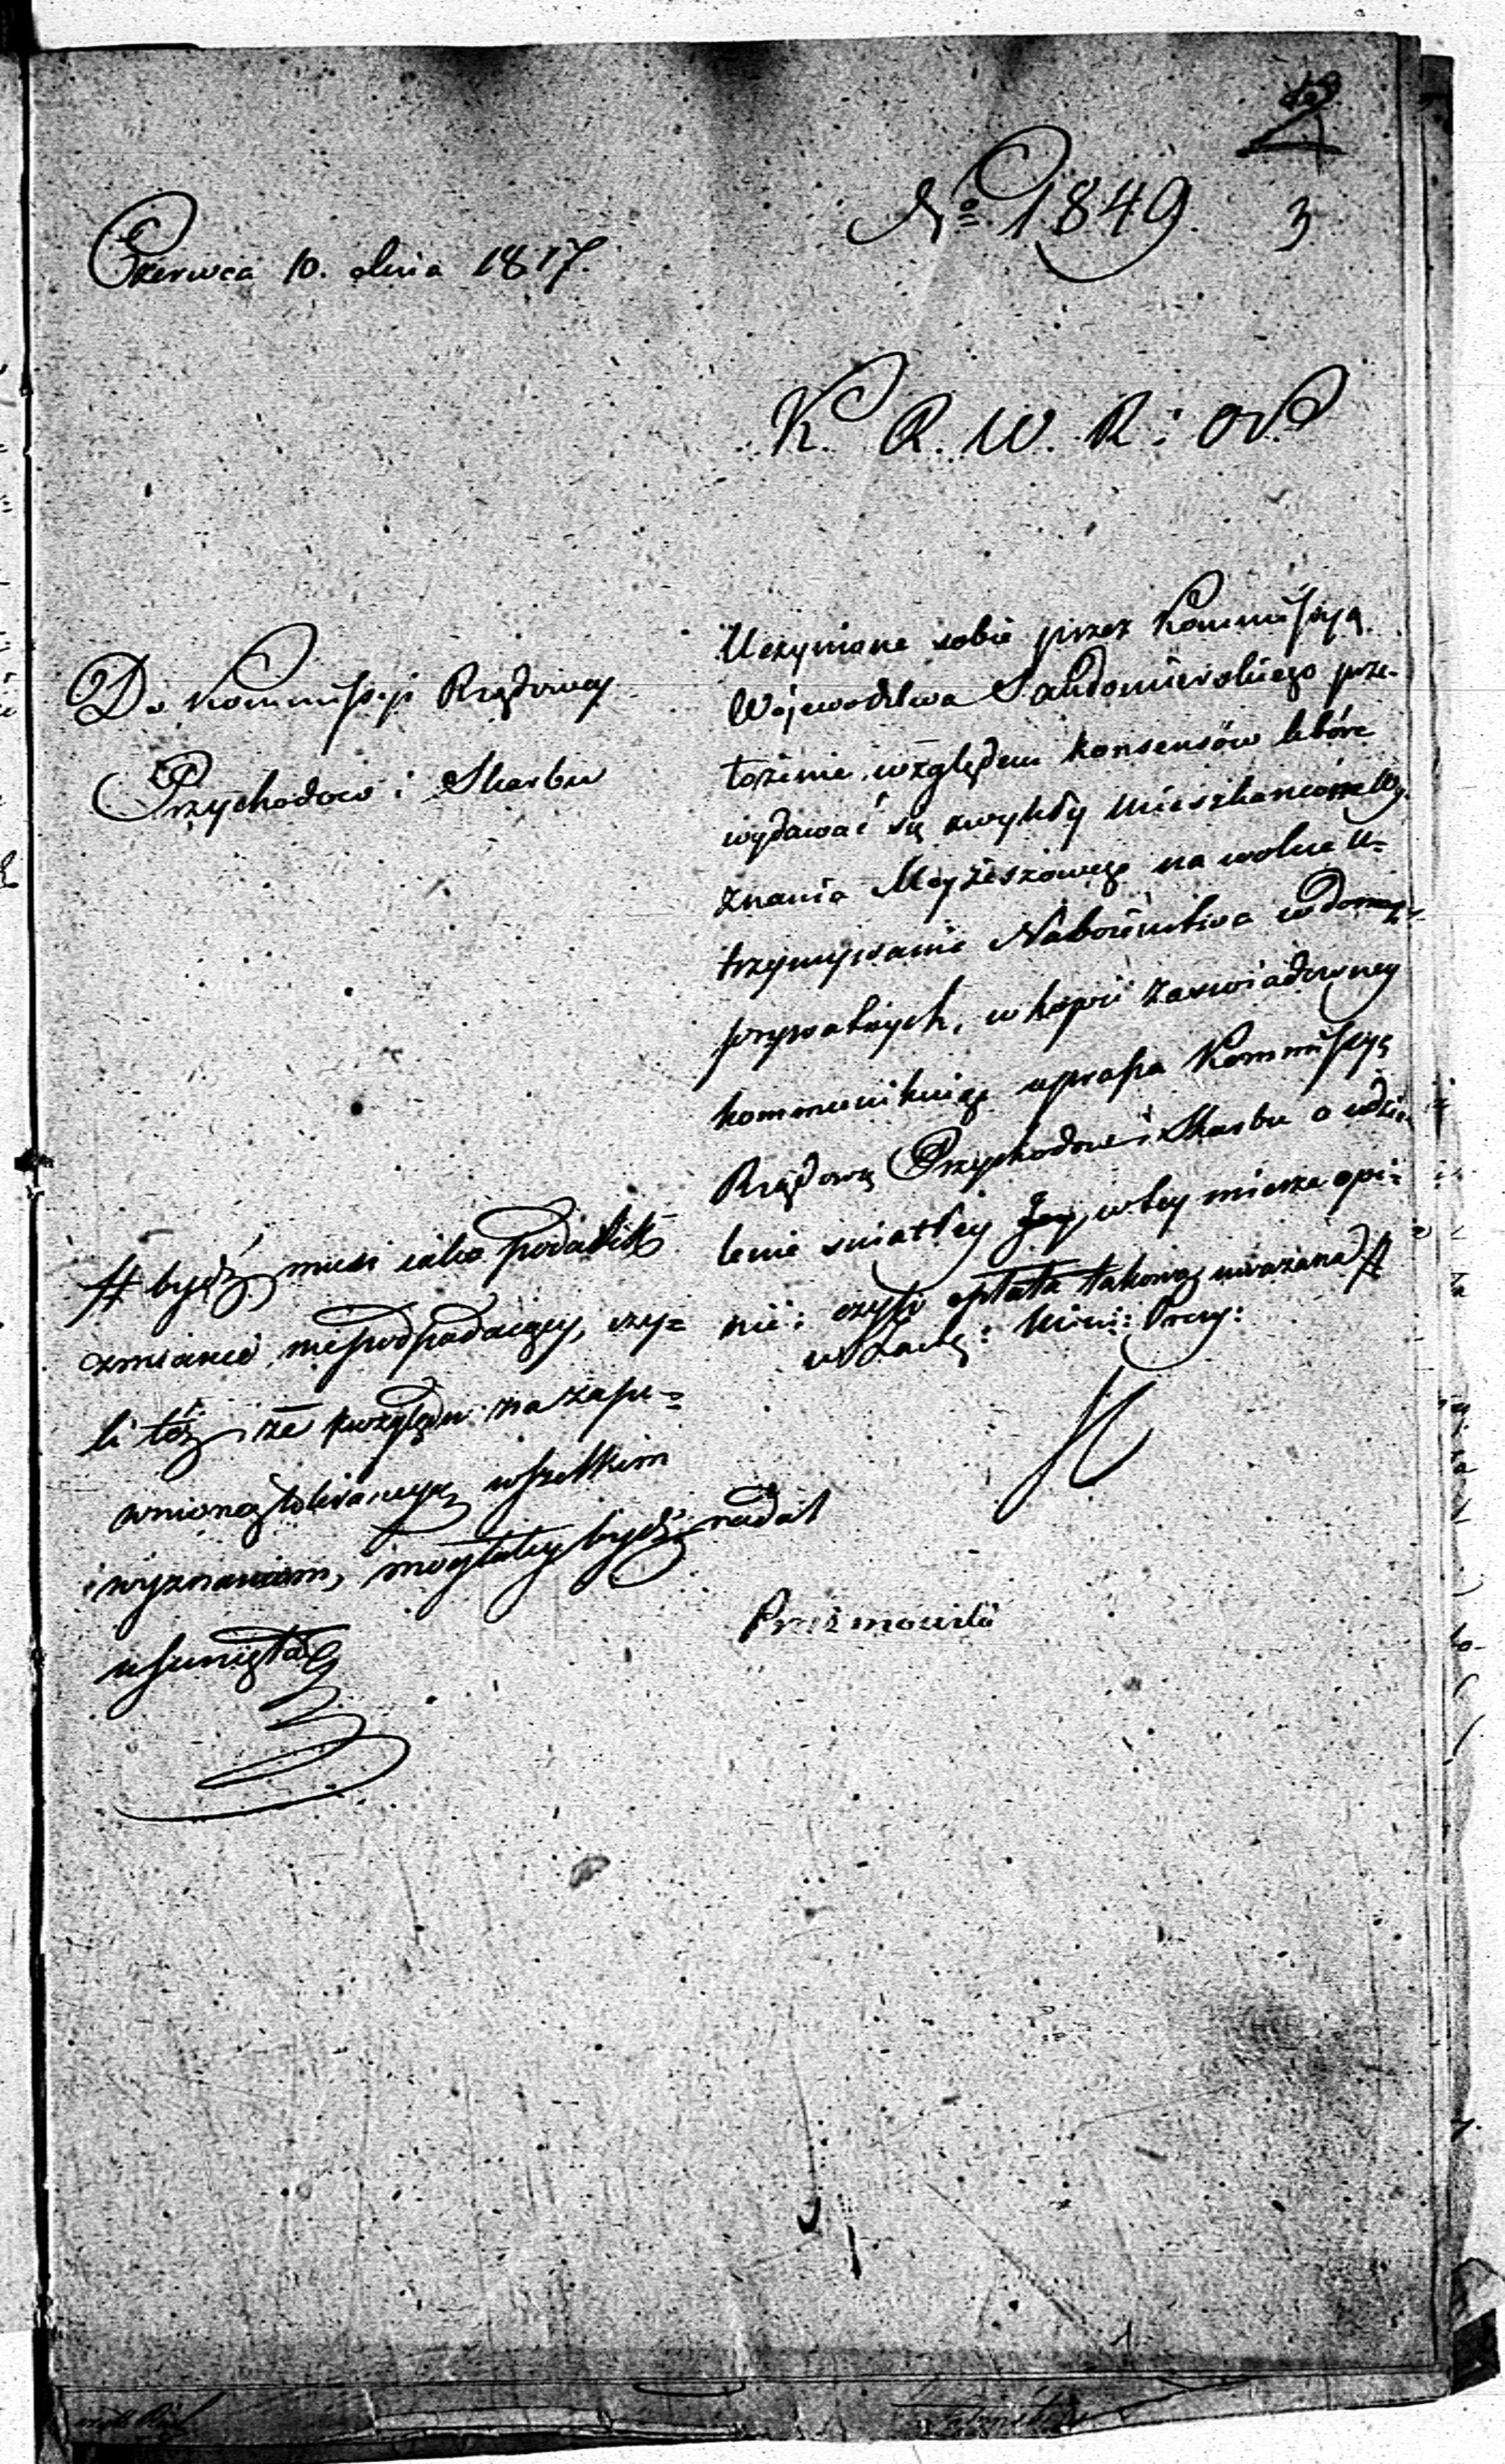 3
No 1849.
Czerwca 10. dnia 1817.
K. R. W. R: i O. P.
Do Kommissyi Rządowey
Przychodow i Skarbu
Uczynione sobie przez Kommissyą
Województwa Sandomierskiego prze-
łożenie względem konsensów które
wydawać się zwykły Mieszkańcom Wy-
znania Mojżeszowego na wolne u=
trzymywanie Nabożeństwa w domach
prywatnych, w kopii zaświadczoney
kommunikuiąc uprasza Kommissyą
Rządową Przychodow i Skarbu o udzie-
lenie światłey Jey, w tey mierze opi=
nii: czyli opłata takowa uważana #
w Zastę: Mini: Prezy:
# bydź musi iako podatek
zmianie niepodpadaiący, czy=
li też ze względu na zape=
wnioną tolerancyą wszelkim
wyznaniom, mogłaby bydź nadal
usuniętą